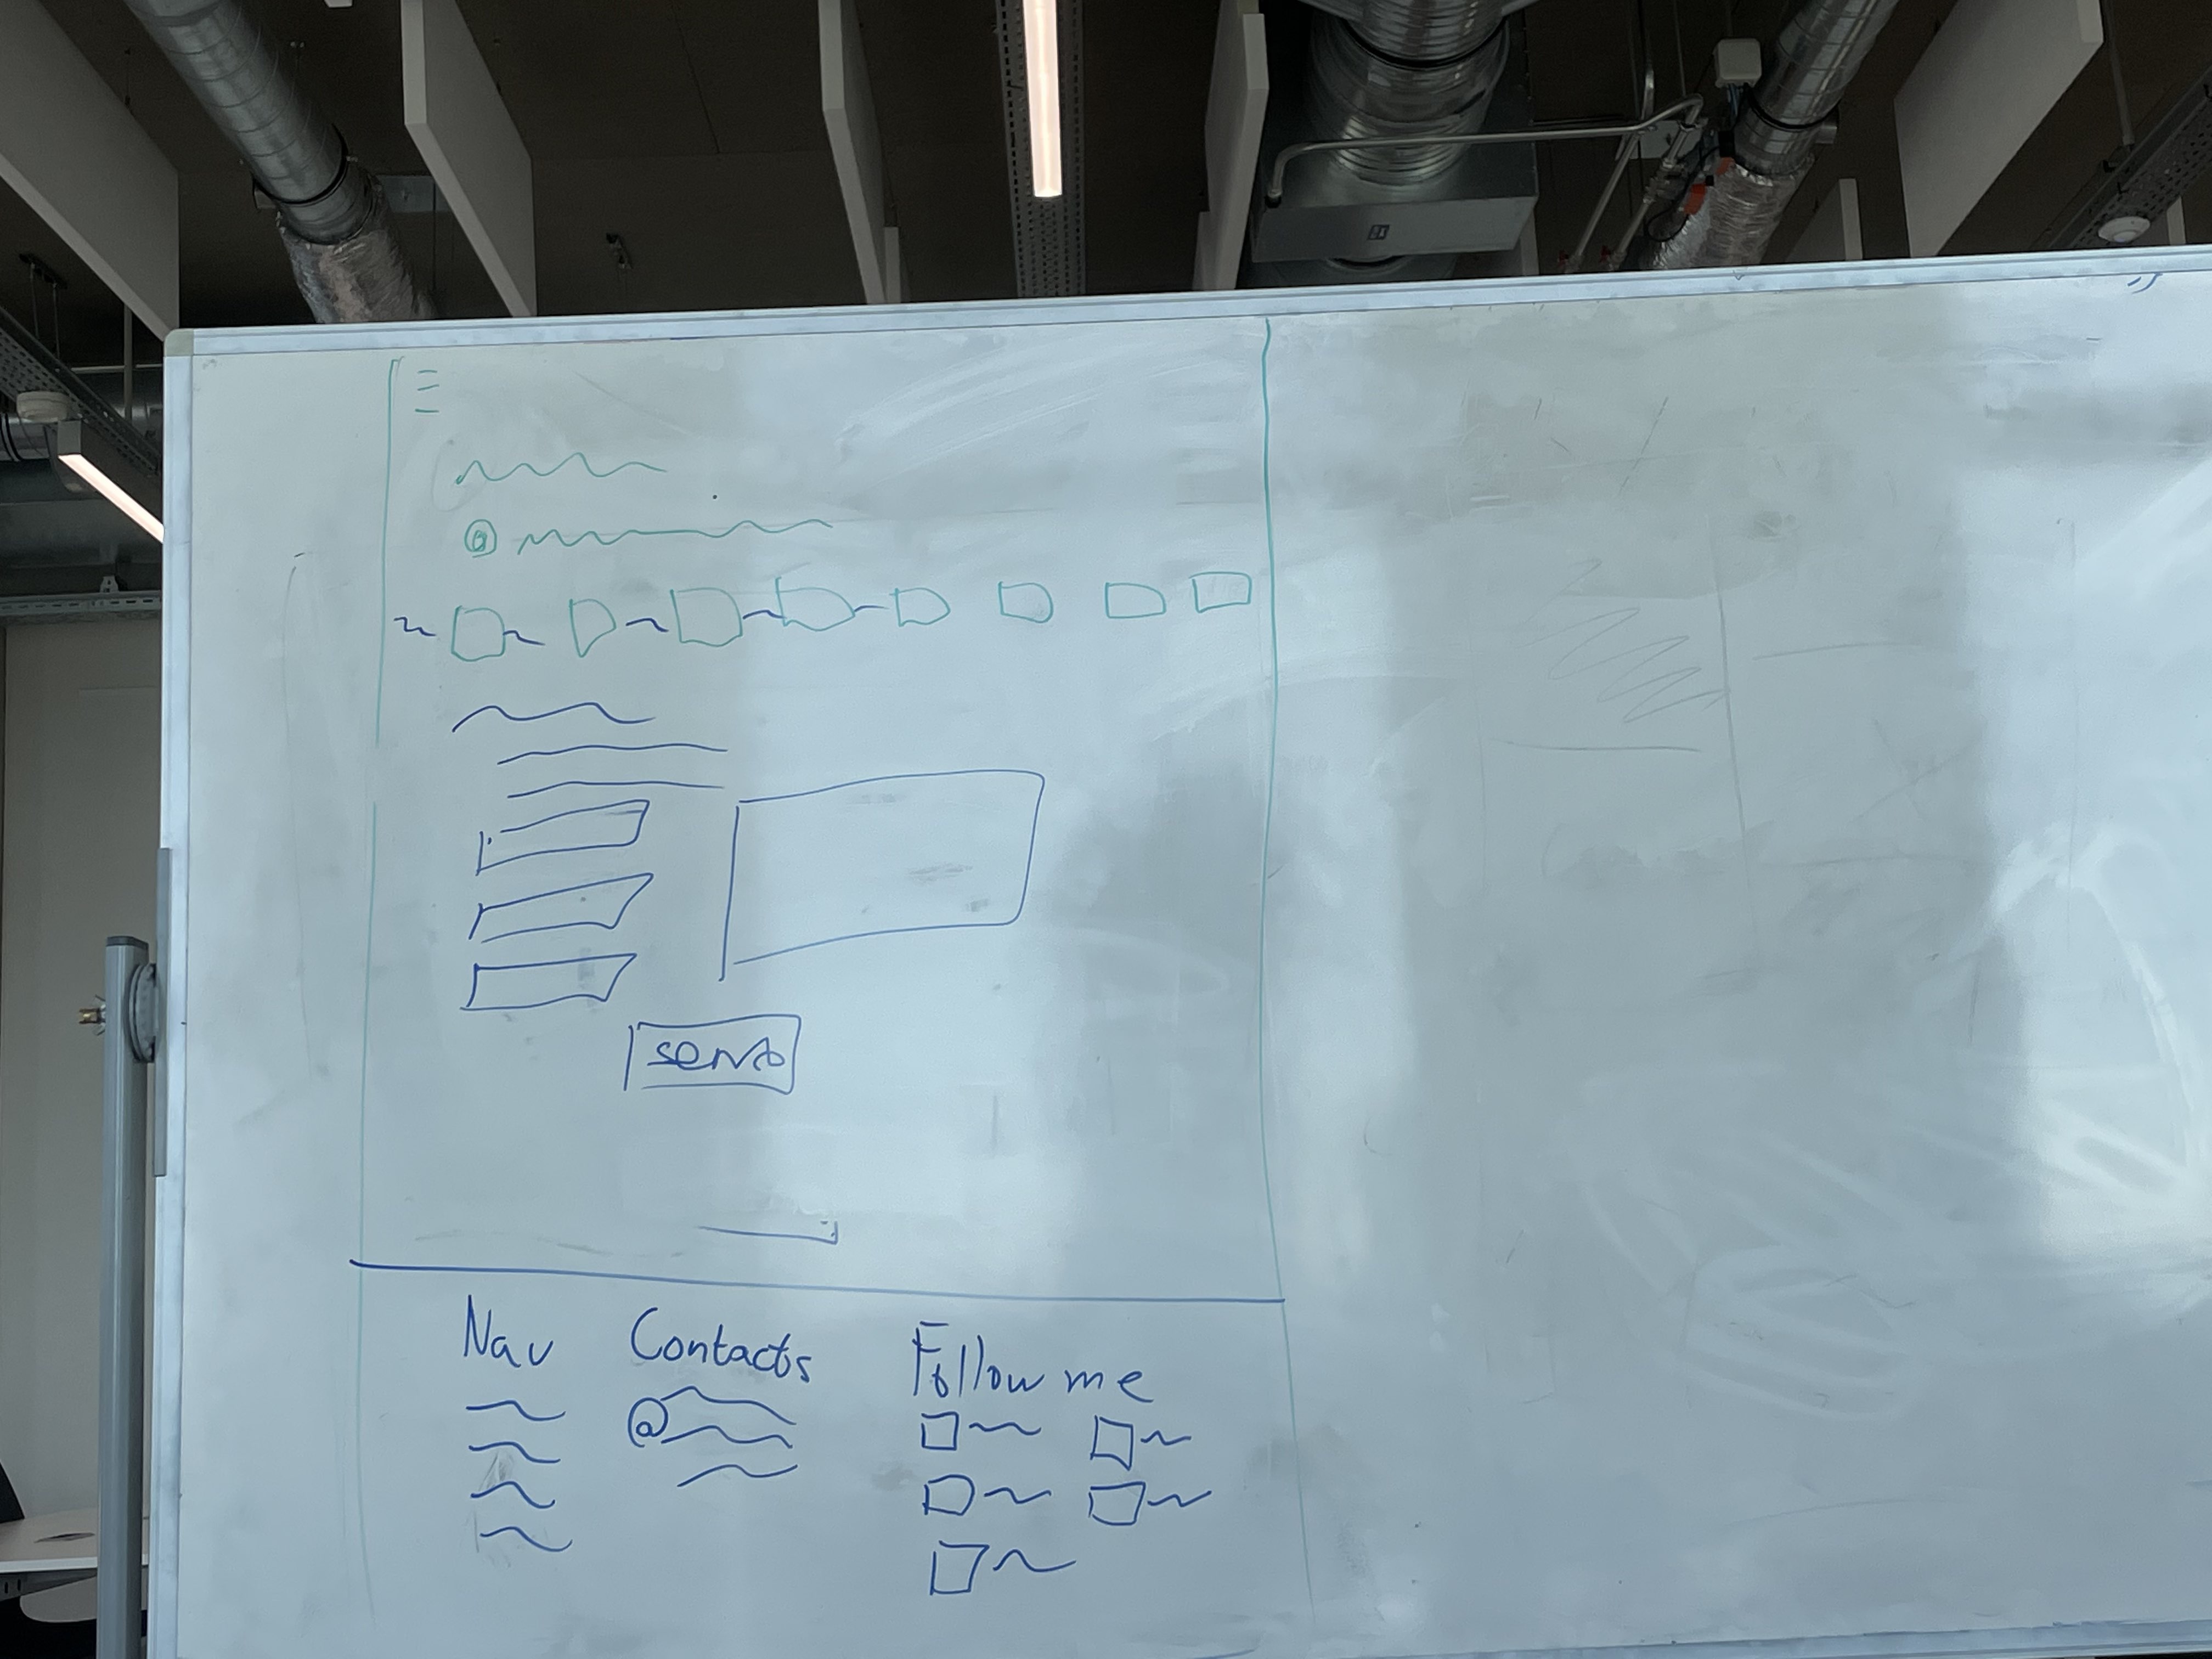 send
Nav Contacts Follow me
@